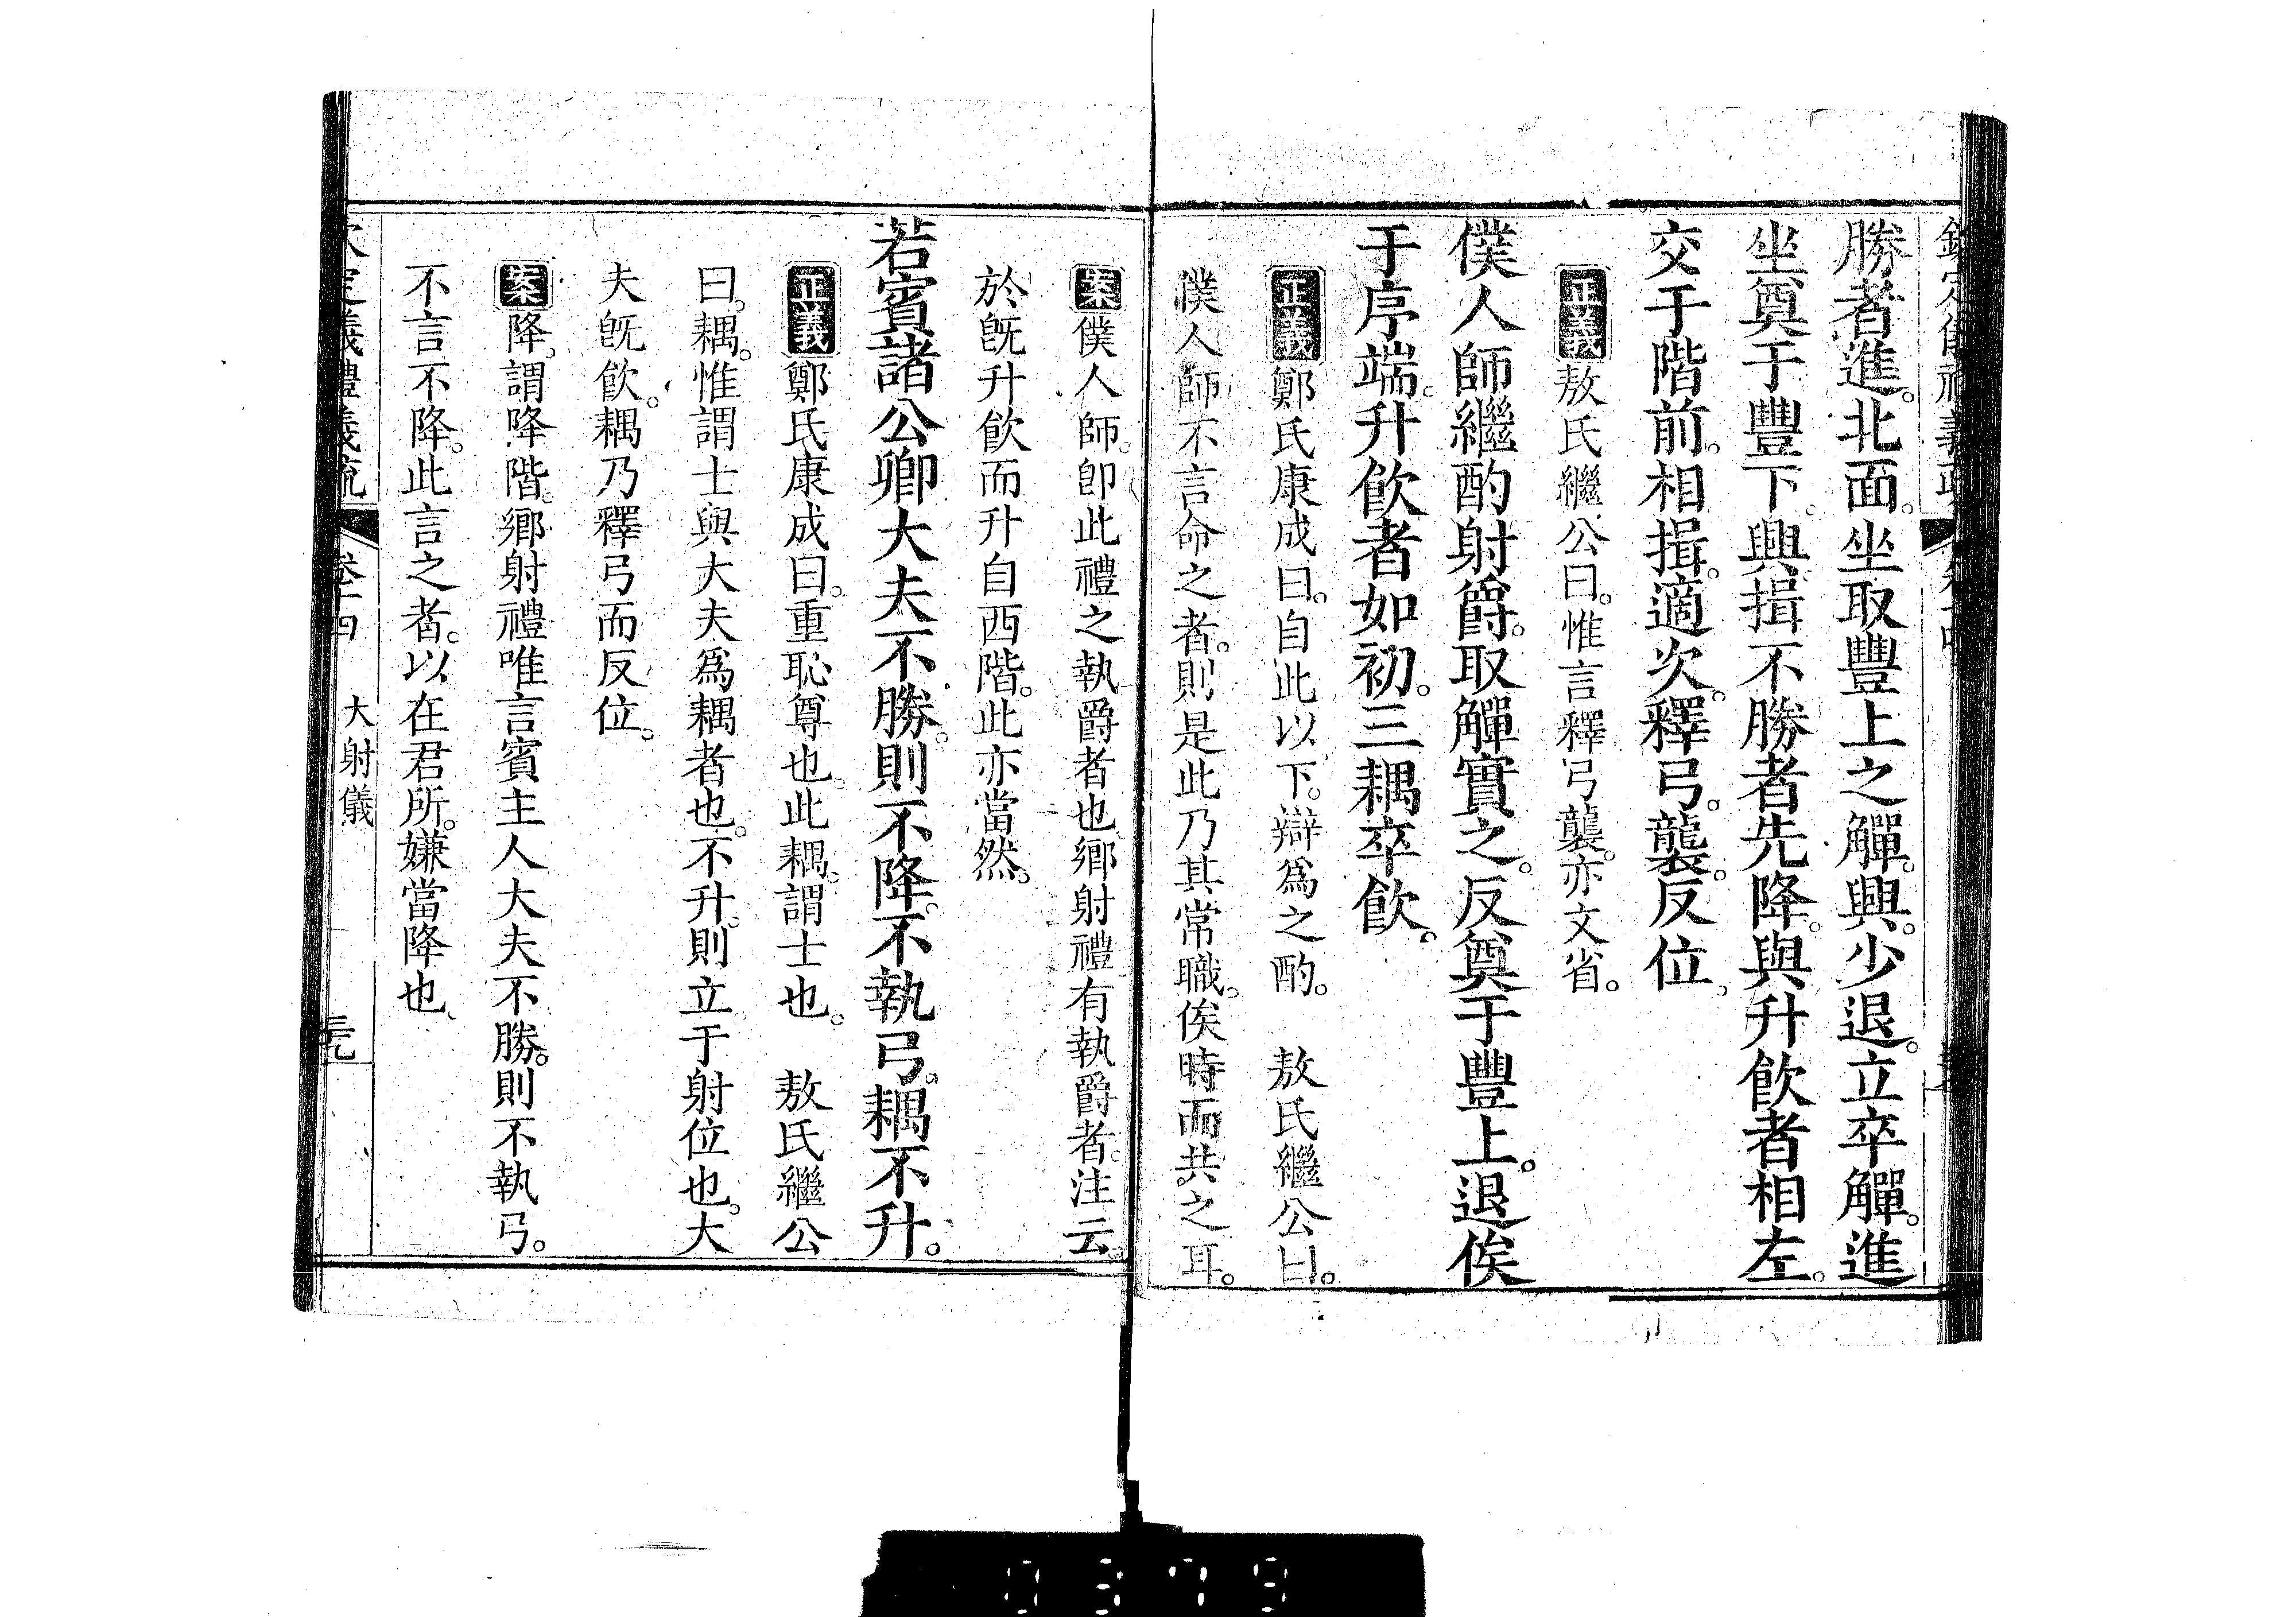 勝者進。北面。坐取豐上之觶。興。少退。立卒觶。進
坐奠于豐下。興揖不勝者先降。與升飮者相左。
交于階前。相揖。適次。釋弓。襲。反位。
正義敖氏繼公曰。惟言釋弓襲。亦文省。
僕人師繼酌射爵。取觶實之。反奠于豐上。退俟
于序端。升飮者如初。三耦卒飮。
正義鄭氏康成曰。自此以下。辯爲之酌。　敖氏繼公曰。
僕人師不言命之者。則是此乃其常職。俟時而共之耳。
案僕人師。卽此禮之執爵者也。鄉射禮有執爵者。注云。
於旣升飮而升自西階。此亦當然。
若賓諸公卿大夫不勝。則不降。不執弓。耦不升。
正義鄭氏康成曰。重恥尊也。此耦。謂士也。　敖氏繼公
曰。耦。惟謂士與大夫爲耦者也。不升。則立于射位也。大
夫旣飮。耦乃釋弓而反位。
案降。謂降階。鄉射禮唯言賓主人大夫不勝。則不執弓。
不言不降。此言之者。以在君所。嫌當降也。
定儀禮義疏　卷十四　大射儀